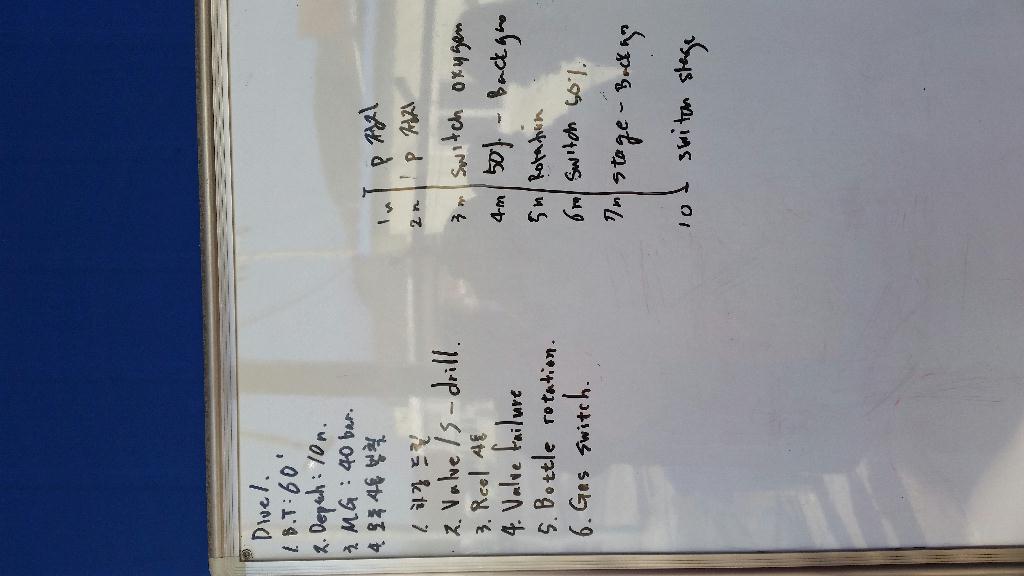 Dive 1.
1. B.T : 60'
2. Depth : 10m.
3. MG : 40 bar.
4. 오류 사용 방법
1. 하강 드릴
2. Valve / S - drill.
3. Reel 사용
4. Valve failure
5. Bottle rotation.
6. Gas switch.
1m P 정리
2m P 정리
3m Switch oxygen
4m 50% - Backgas
5m Rotation
6m Switch 50%.
7m stage - Backgas
10 switch stage